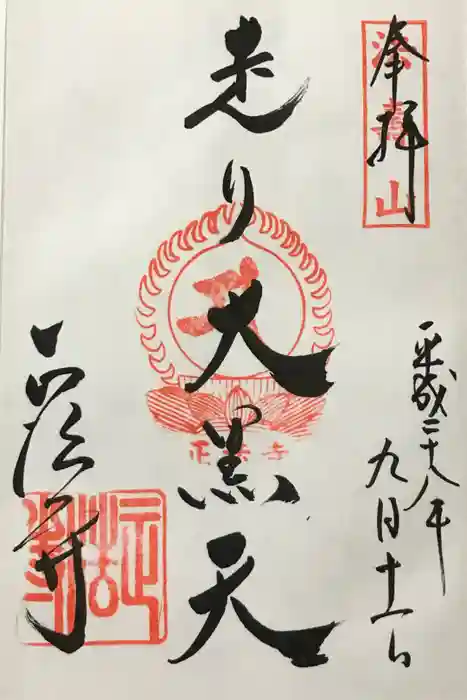 奉拝
法喜山
平成二十八年
九月十一日
走り大黒天
正法寺
正法寺